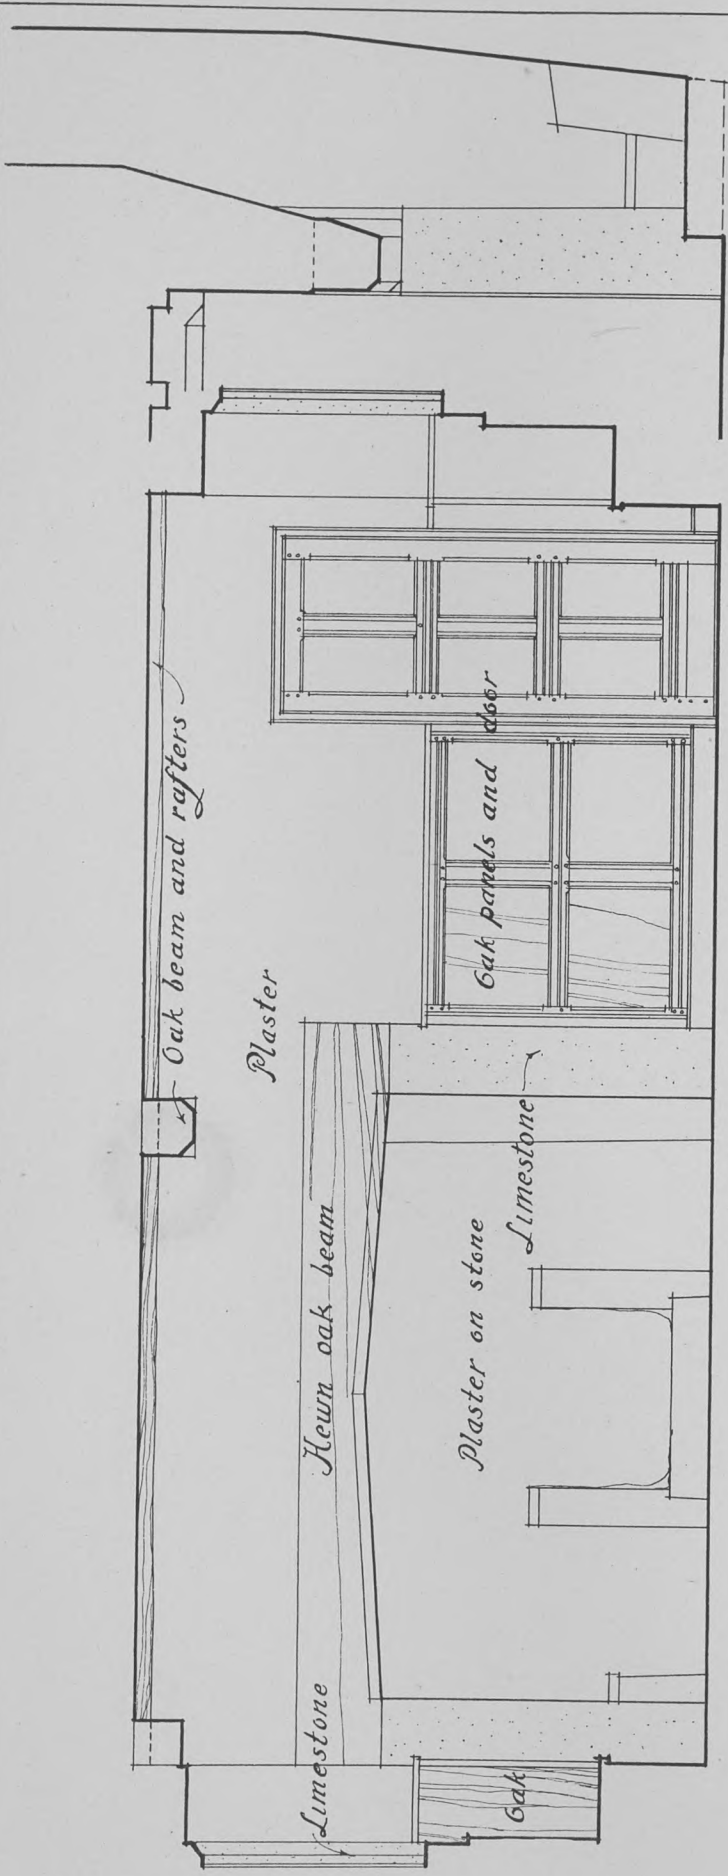 Oak beam and rafters
Plaster
Oak panels and door
Hewn oak beam
Limestone
Plaster on stone
Limestone
Oak